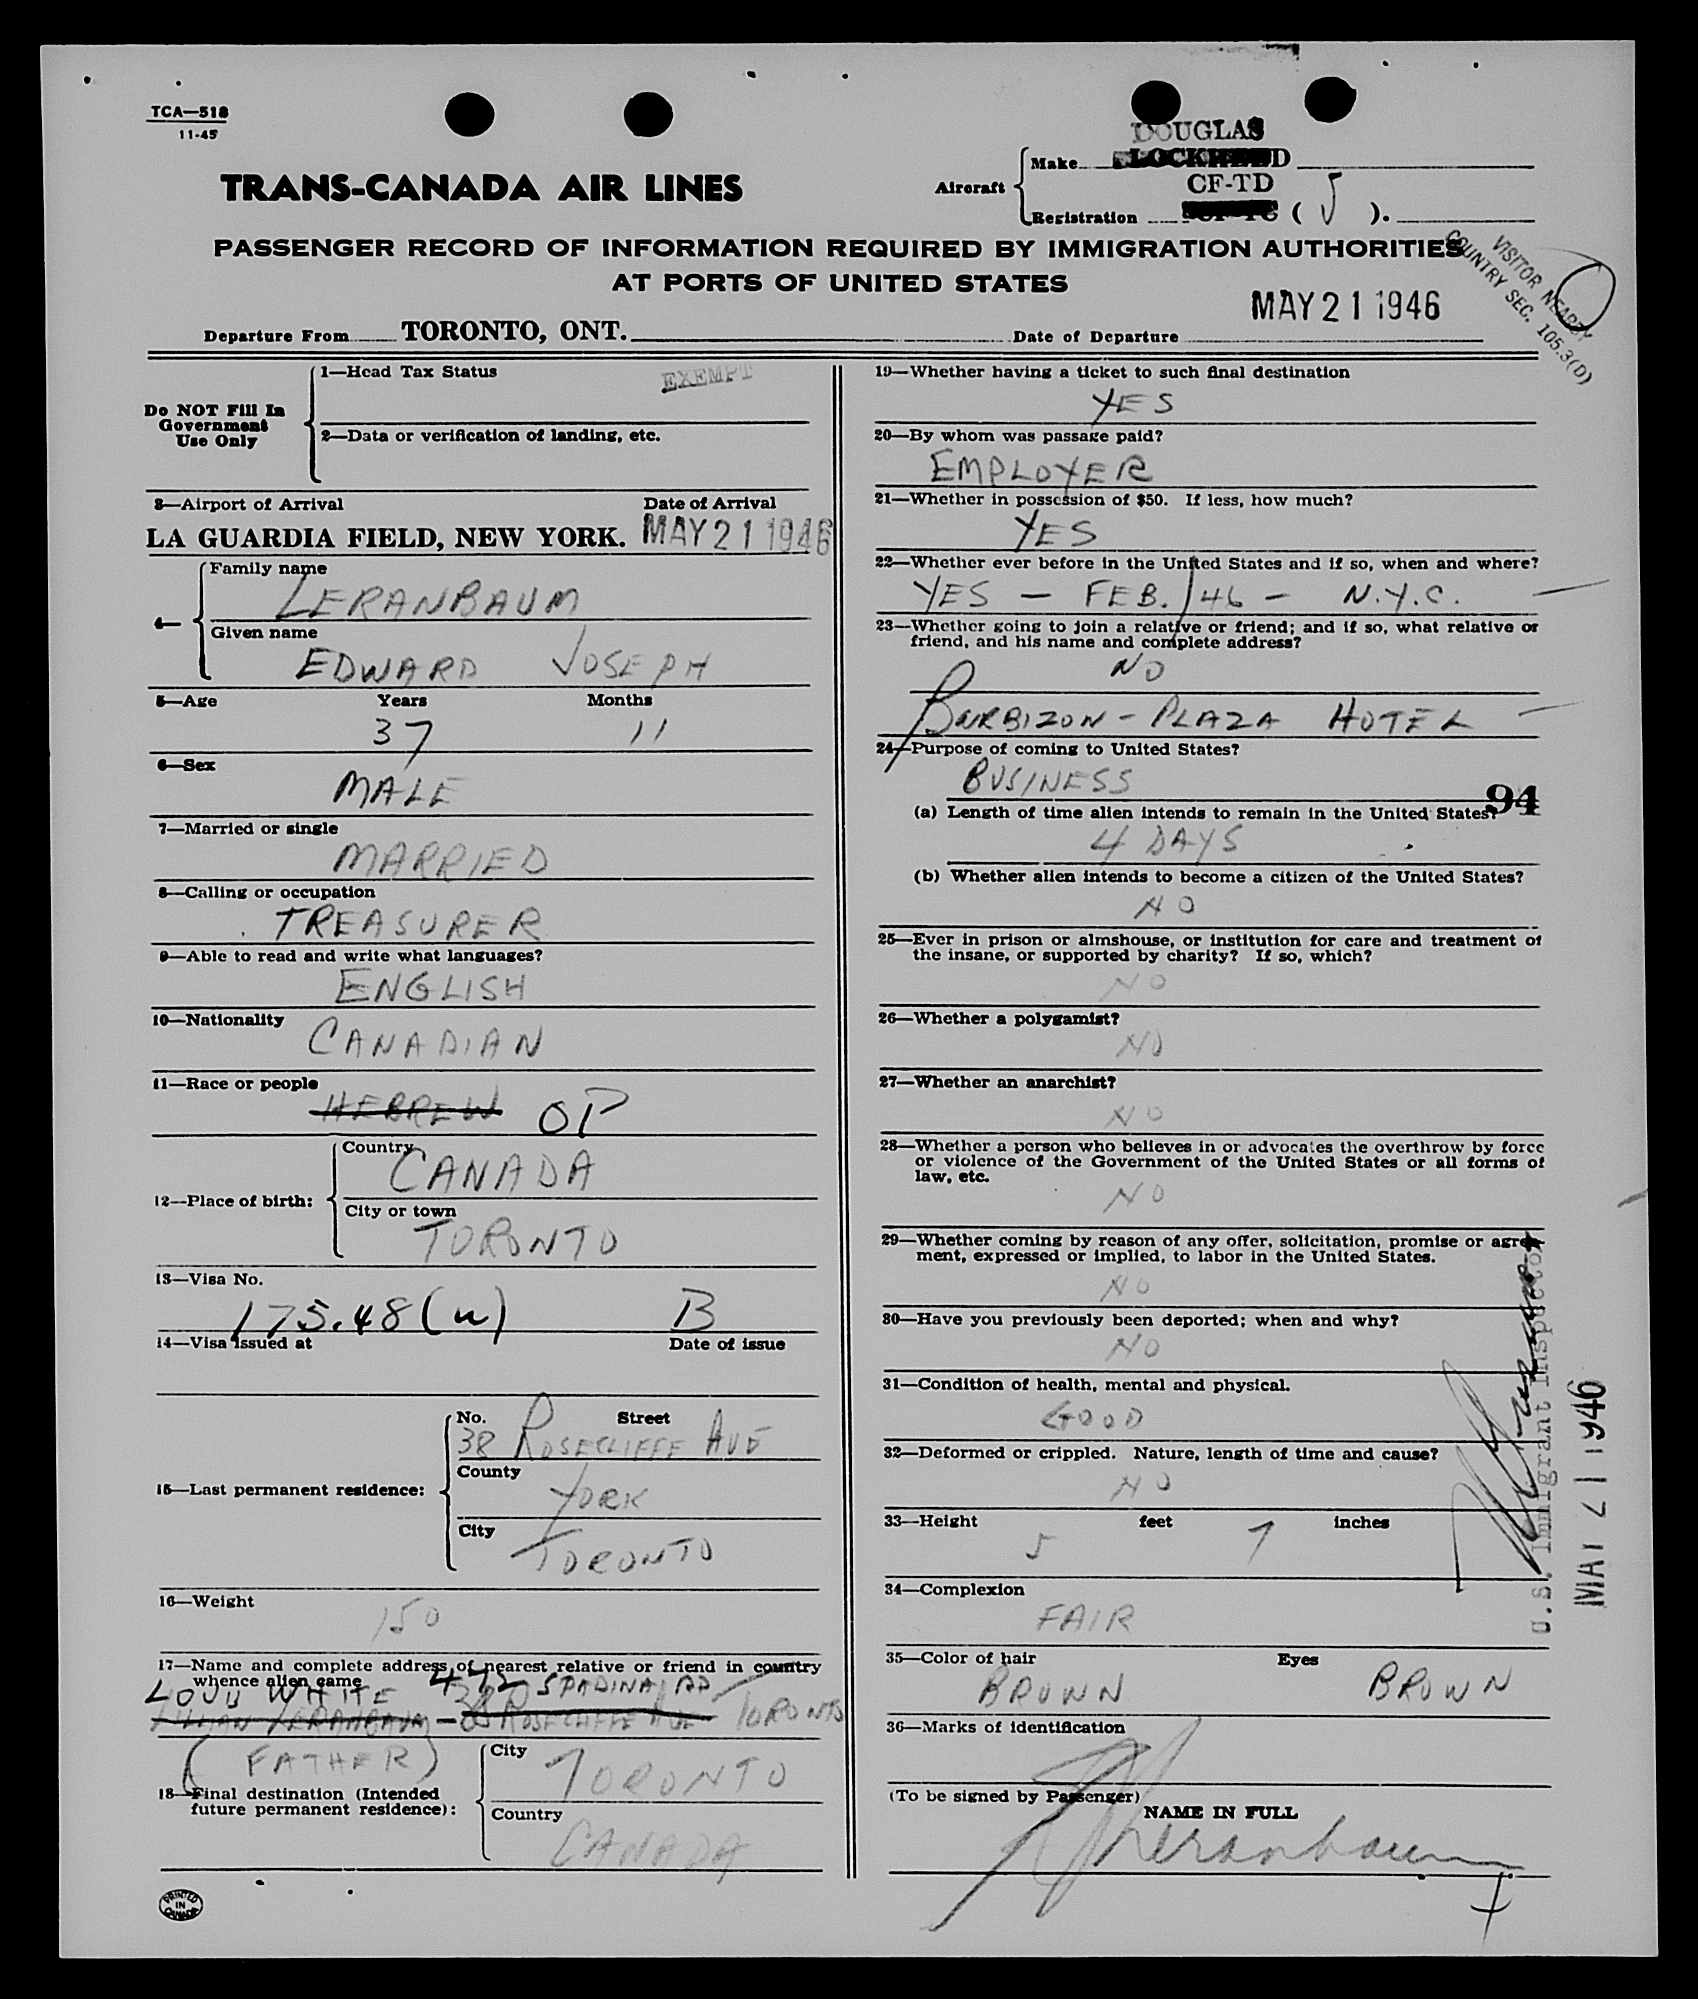 TCA—518
11-45
TRANS-CANADA AIR LINES
DOUGLAS
Aircraft
Make LOCKHEED
CF-TD
Registration CF-TC ( J ).
PASSENGER RECORD OF INFORMATION REQUIRED BY IMMIGRATION AUTHORITIES
AT PORTS OF UNITED STATES
VISITOR NEARBY
COUNTRY SEC. 105.3(D)
Departure From TORONTO, ONT.
Date of Departure MAY 21 1946
Do NOT Fill In
Government
Use Only
1—Head Tax Status EXEMPT
2—Data or verification of landing, etc.
3—Airport of Arrival Date of Arrival
LA GUARDIA FIELD, NEW YORK. MAY 21 1946
4—
Family name
LERANBAUM
Given name
EDWARD JOSEPH
5—Age Years Months
37 11
6—Sex
MALE
7—Married or single
MARRIED
8—Calling or occupation
TREASURER
9—Able to read and write what languages?
ENGLISH
10—Nationality
CANADIAN
11—Race or people
HEBREW OP
12—Place of birth:
Country
CANADA
City or town
TORONTO
13—Visa No.
175.48(w) B
14—Visa issued at Date of issue
15—Last permanent residence:
No. Street
38 ROSECLIFFE AVE
County
YORK
City
TORONTO
16—Weight
150
17—Name and complete address of nearest relative or friend in country
whence alien came
WHITE 472 SPADINA RD
LILLIAN LERANBAUM - 38 ROSECLIFFE AVE TORONTO
(FATHER)
18—Final destination (Intended
future permanent residence):
City
TORONTO
Country
CANADA
PRINTED
IN
CANADA
19—Whether having a ticket to such final destination
YES
20—By whom was passage paid?
EMPLOYER
21—Whether in possession of $50. If less, how much?
YES
22—Whether ever before in the United States and if so, when and where?
YES — FEB./46 — N.Y.C.
23—Whether going to join a relative or friend; and if so, what relative or
friend, and his name and complete address?
NO
BARBIZON - PLAZA HOTEL
24—Purpose of coming to United States?
BUSINESS
94
(a) Length of time alien intends to remain in the United States?
4 DAYS
(b) Whether alien intends to become a citizen of the United States?
NO
25—Ever in prison or almshouse, or institution for care and treatment of
the insane, or supported by charity? If so, which?
NO
26—Whether a polygamist?
NO
27—Whether an anarchist?
NO
28—Whether a person who believes in or advocates the overthrow by force
or violence of the Government of the United States or all forms of
law, etc.
NO
29—Whether coming by reason of any offer, solicitation, promise or agree-
ment, expressed or implied, to labor in the United States.
NO
30—Have you previously been deported; when and why?
NO
31—Condition of health, mental and physical.
GOOD
32—Deformed or crippled. Nature, length of time and cause?
NO
33—Height feet inches
5 7
34—Complexion
FAIR
35—Color of hair Eyes
BROWN BROWN
36—Marks of identification
(To be signed by Passenger)
NAME IN FULL
Leranbaum
U.S. Immigrant Inspector
MAY 21 1946